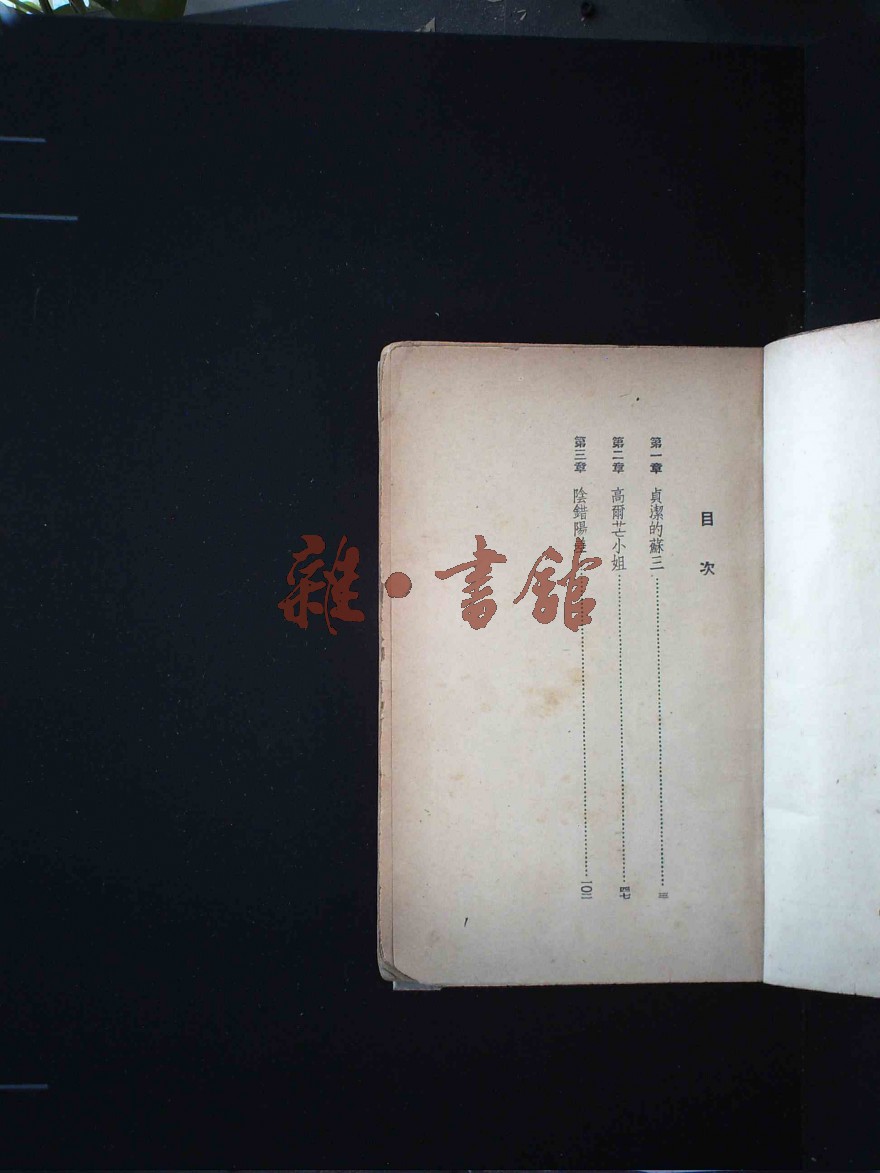 目次
第一章 貞潔的蘇三 三
第二章 高爾芒小姐 四七
第三章 陰錯陽差 一〇三
雜·書館